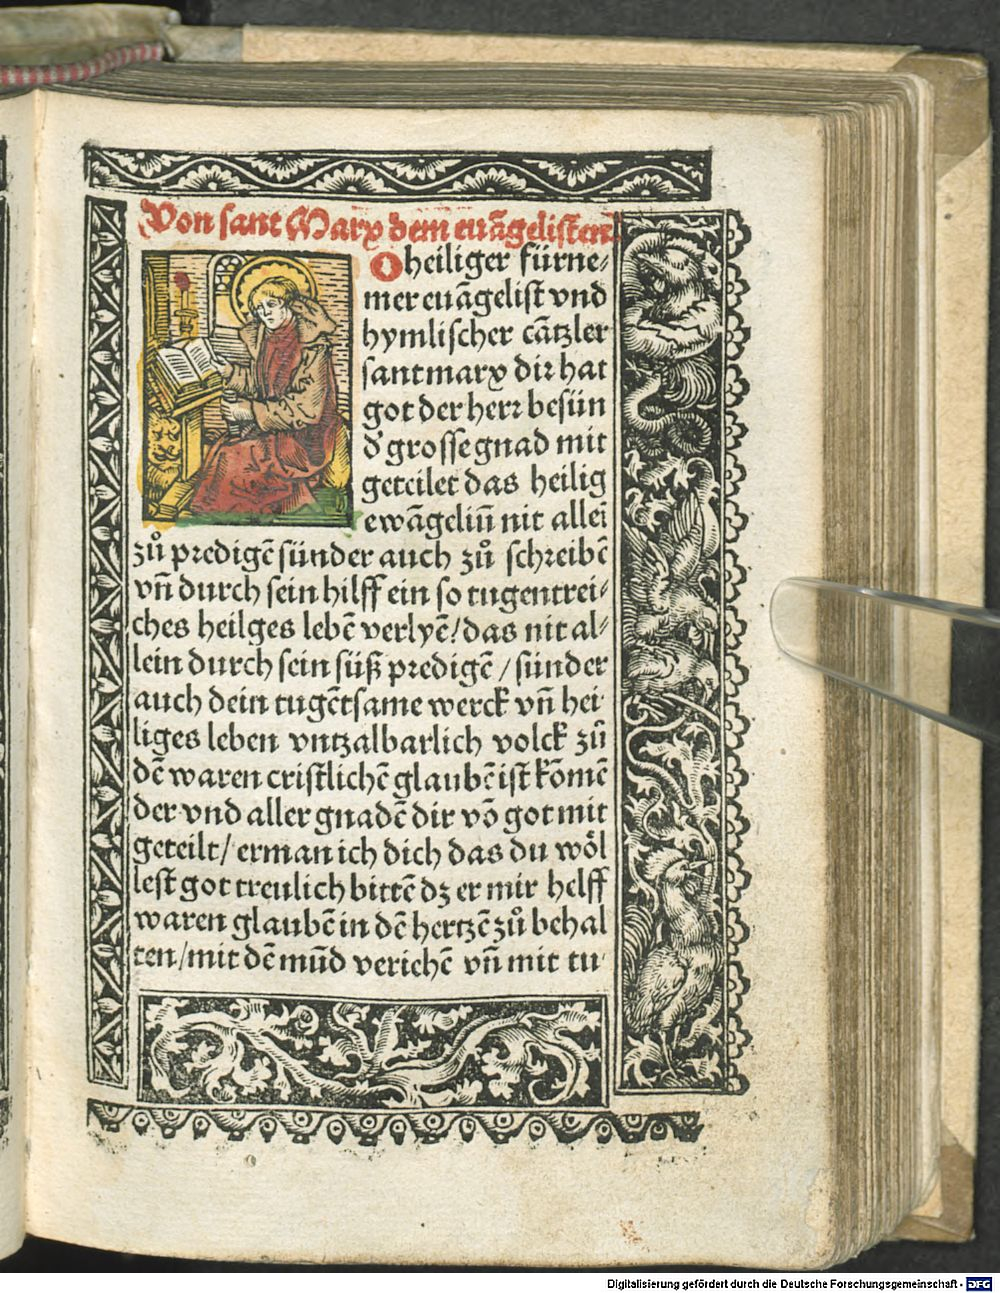 Von sant Marx dem euãgelisten.
O heiliger fürne⸗
mer euãgelist vnd
hymlischer cãtzler
sant marx dir hat
got der herr besün
d' grosse gnad mit
geteilet das heilig
ewãgeliũ nit alleĩ
zů predigẽ sünder auch zů schreibẽ
vñ durch sein hilff ein so tugentrei⸗
ches heilges lebẽ verlyẽ/ das nit al⸗
lein durch sein süß predigẽ / sünder
auch dein tugẽtsame werck vñ hei
liges leben vntzalbarlich volck zů
dẽ waren cristlichẽ glaubẽ ist kõmẽ
der vnd aller gnadẽ dir võ got mit
geteilt/ erman ich dich das du wöl
lest got treulich bittẽ dz er mir helff
waren glaubẽ in dẽ hertzẽ zů behal
ten/ mit dẽ mũd veriehẽ vñ mit tu⸗
Digitalisierung gefördert durch die Deutsche Forschungsgemeinschaft - DFG